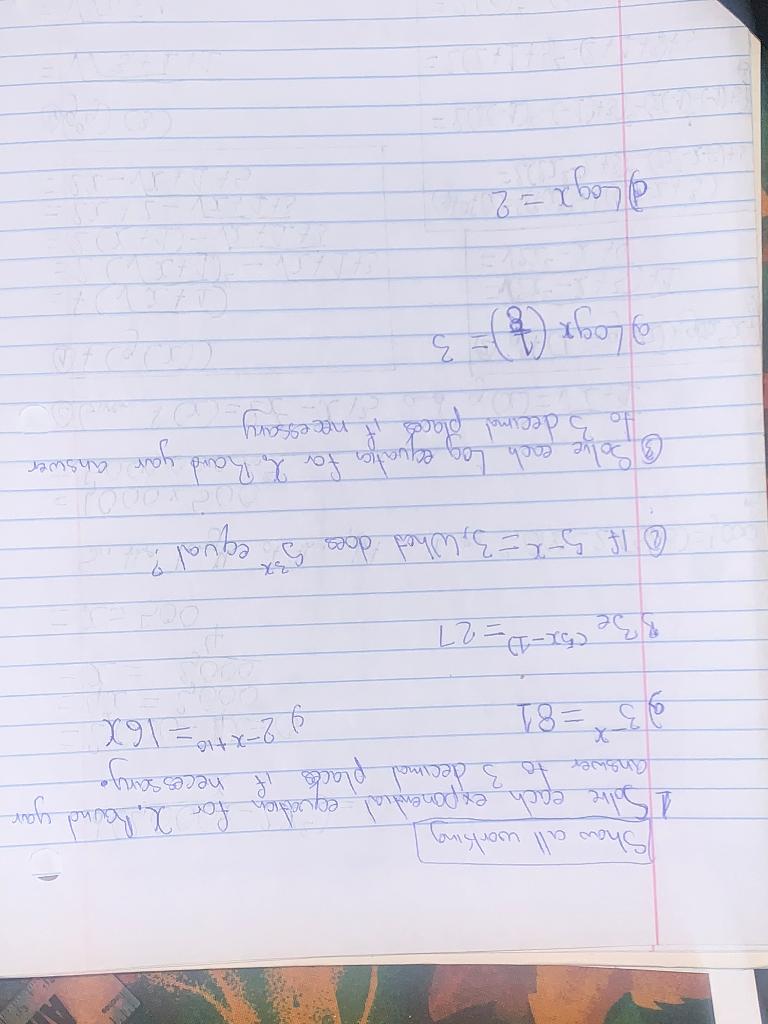 Show all working
1 Solve each exponential equation for x. Round your
answer to 3 decimal places if necessary.
a) 3^-x = 81 c) 2^-x+10 = 16x
b) 3e^(5x-1) = 27
② If 5-x = 3, What does 5^3x equal?
③ Solve each Log equation for x. Round your answer
to 3 decimal places if necessary
a) Logx (1/8) = 3
d) Logx = 2